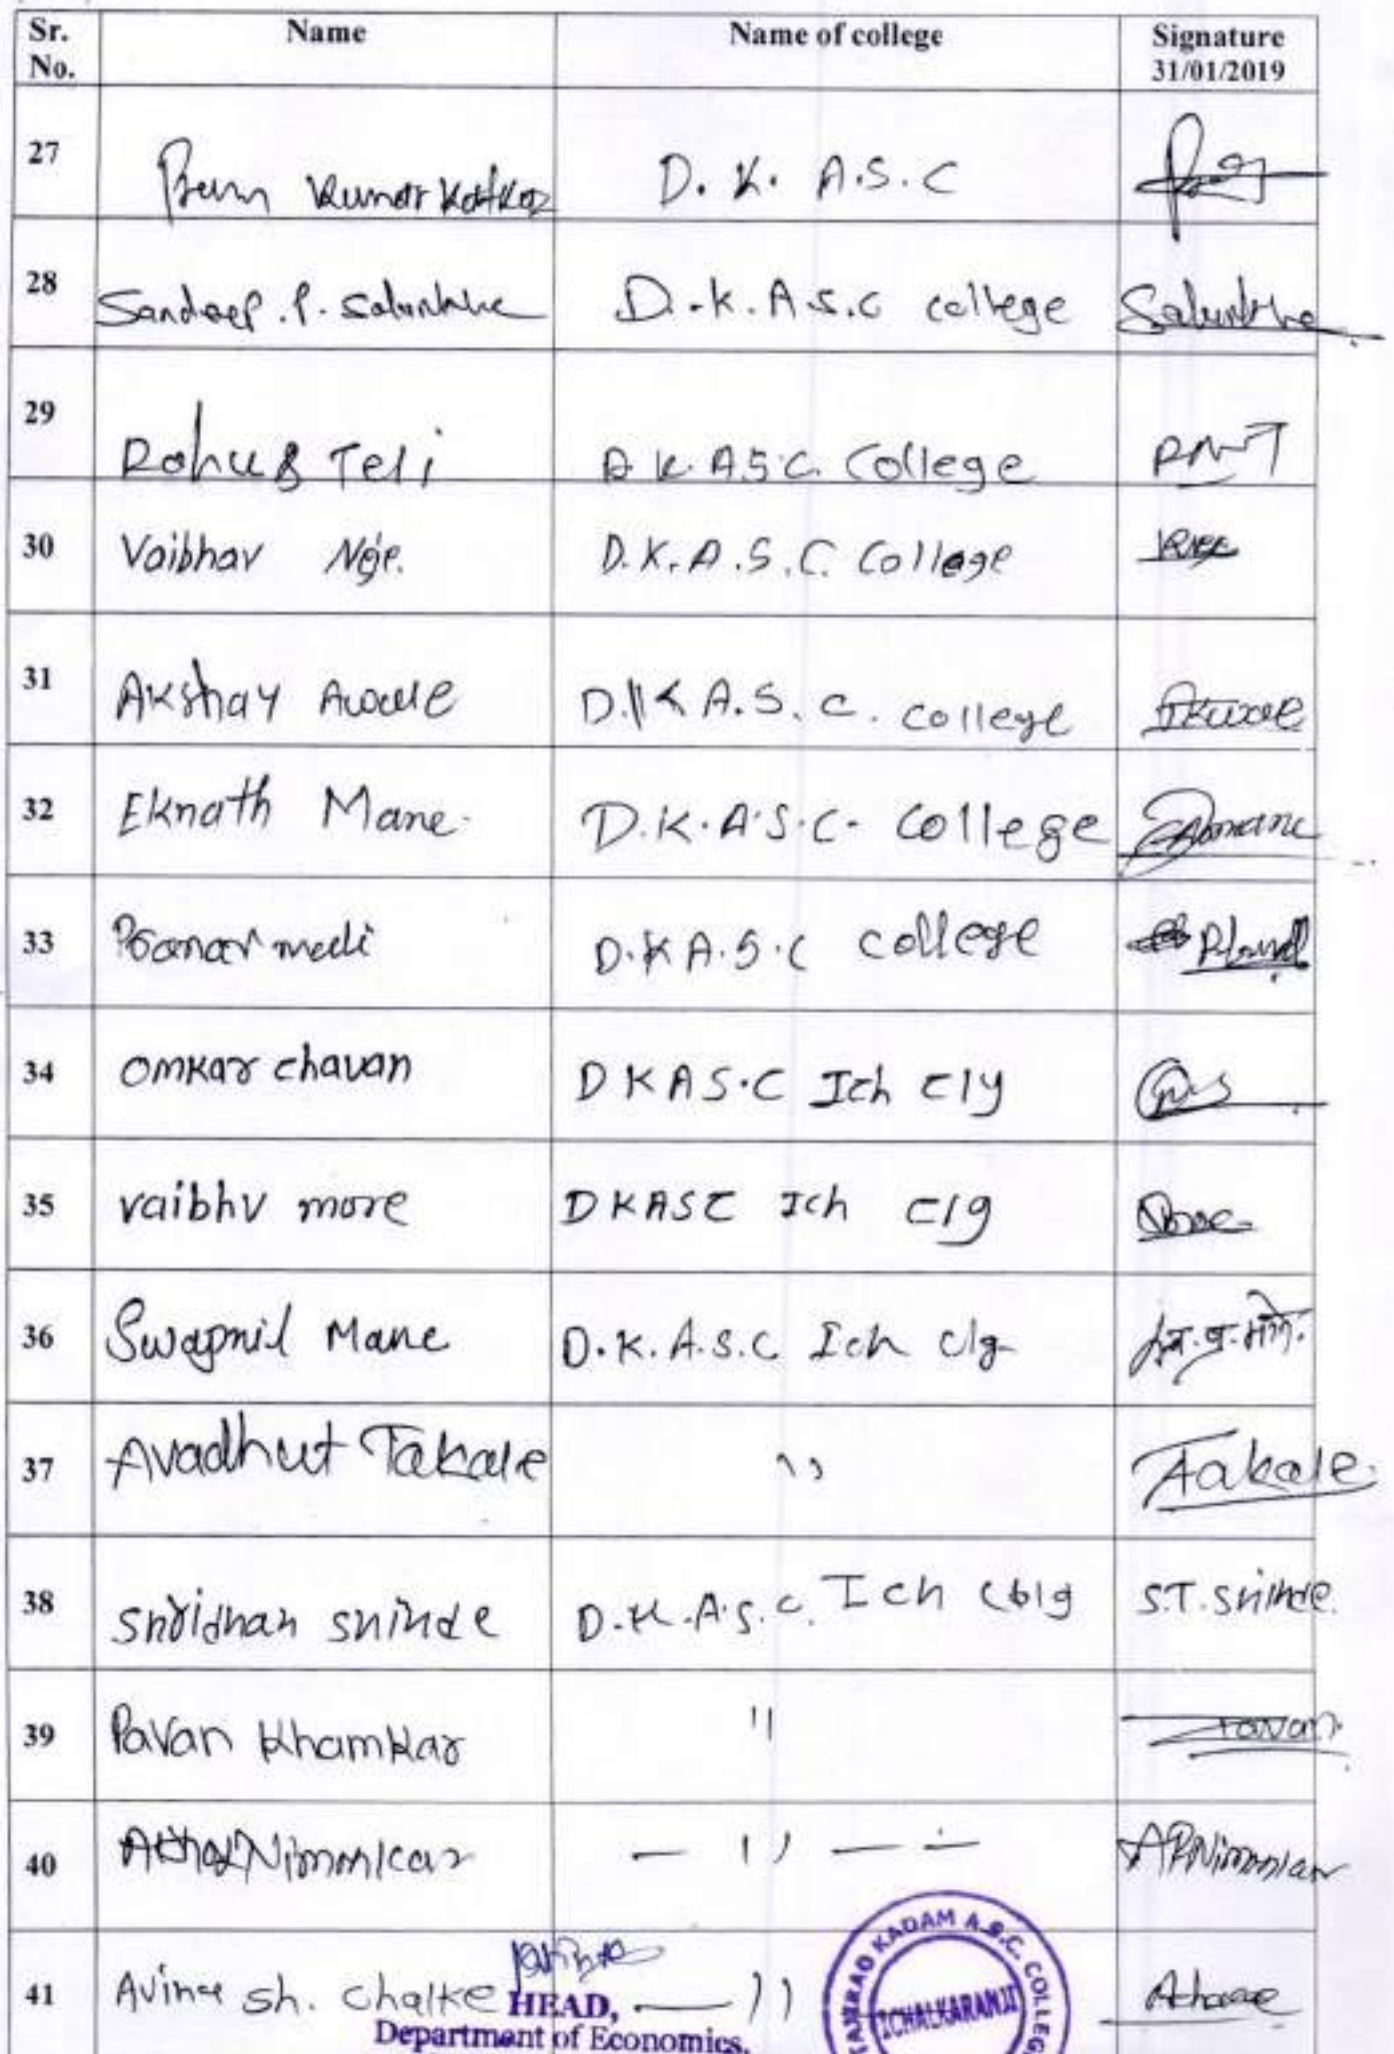 Sr. No. Name Name of college Signature 31/01/2019
27 Kumar D. K. A.S.C
28 Sandeep .P. Salunkhe D.K.A.S.C college Salunkhe
29 Teli D K. A.S.C. College
30 Vaibhav D.K.A.S.C. College
31 Akshay Awale D.K A.S.C. college
32 Eknath Mane. D.K.A.S.C. College
33 D.K A.S.C college
34 omkar chavan DKAS.C Ich clg
35 vaibhv more DKASC Ich clg
36 Swapnil Mane D.K.A.S.C Ich clg
37 Avadhut Takale " Takale
38 shridhar shinde D.K.A.S.C. Ich S.T. shinde.
39 Pavan Khamkar " Pavan
40 Nimmkar — " —
41 Avinash. chalke — "
HEAD,
Department of Economics,
KADAM A.S.C. COLLEGE
ICHALKARANJI